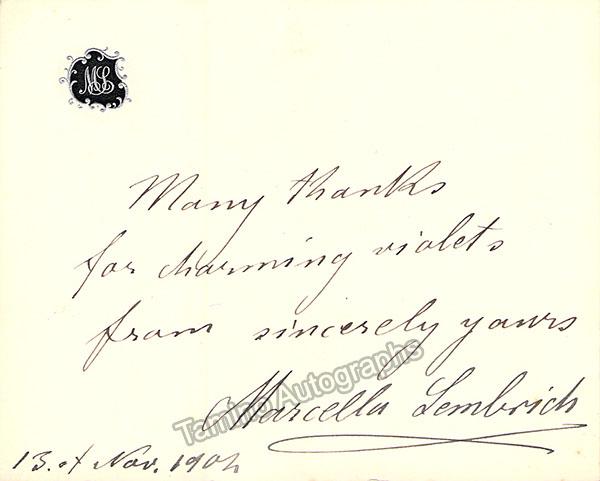 MS
Many thanks
for charming violets
from sincerely yours
Marcella Sembrich
Tamino Autographs
13. of Nov. 1902